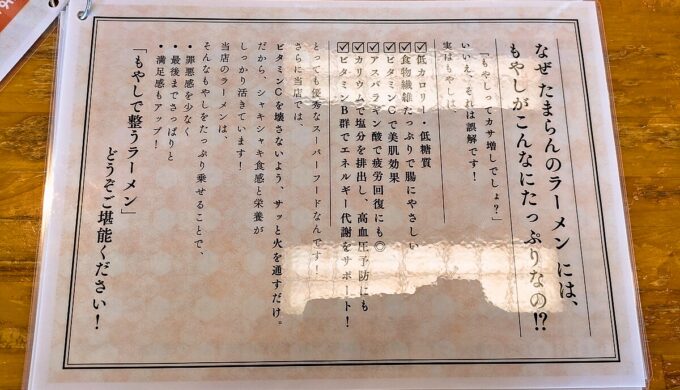 なぜ たまらんのラーメン には、
もやしがこんなにたっぷりなの!?
「もやしってカサ増しでしょ?」
いいえ、それは誤解です!
実はもやしは、
☑低カロリー・低糖質
☑食物繊維たっぷりで腸にやさしい
☑ビタミンCで美肌効果
☑アスパラギン酸で疲労回復にも◎
☑カリウムで塩分を排出し、高血圧予防にも
☑ビタミンB群でエネルギー代謝をサポート!
とっても優秀なスーパーフードなんです!
さらに当店では、
ビタミンCを壊さないよう、サッと火を通すだけ。
だから、シャキシャキ食感と栄養が
しっかり活きています!
当店のラーメンは、
そんなもやしをたっぷり乗せることで、
•罪悪感を少なく
•最後までさっぱりと
•満足感もアップ!
「もやしで整うラーメン」
どうぞご堪能ください!